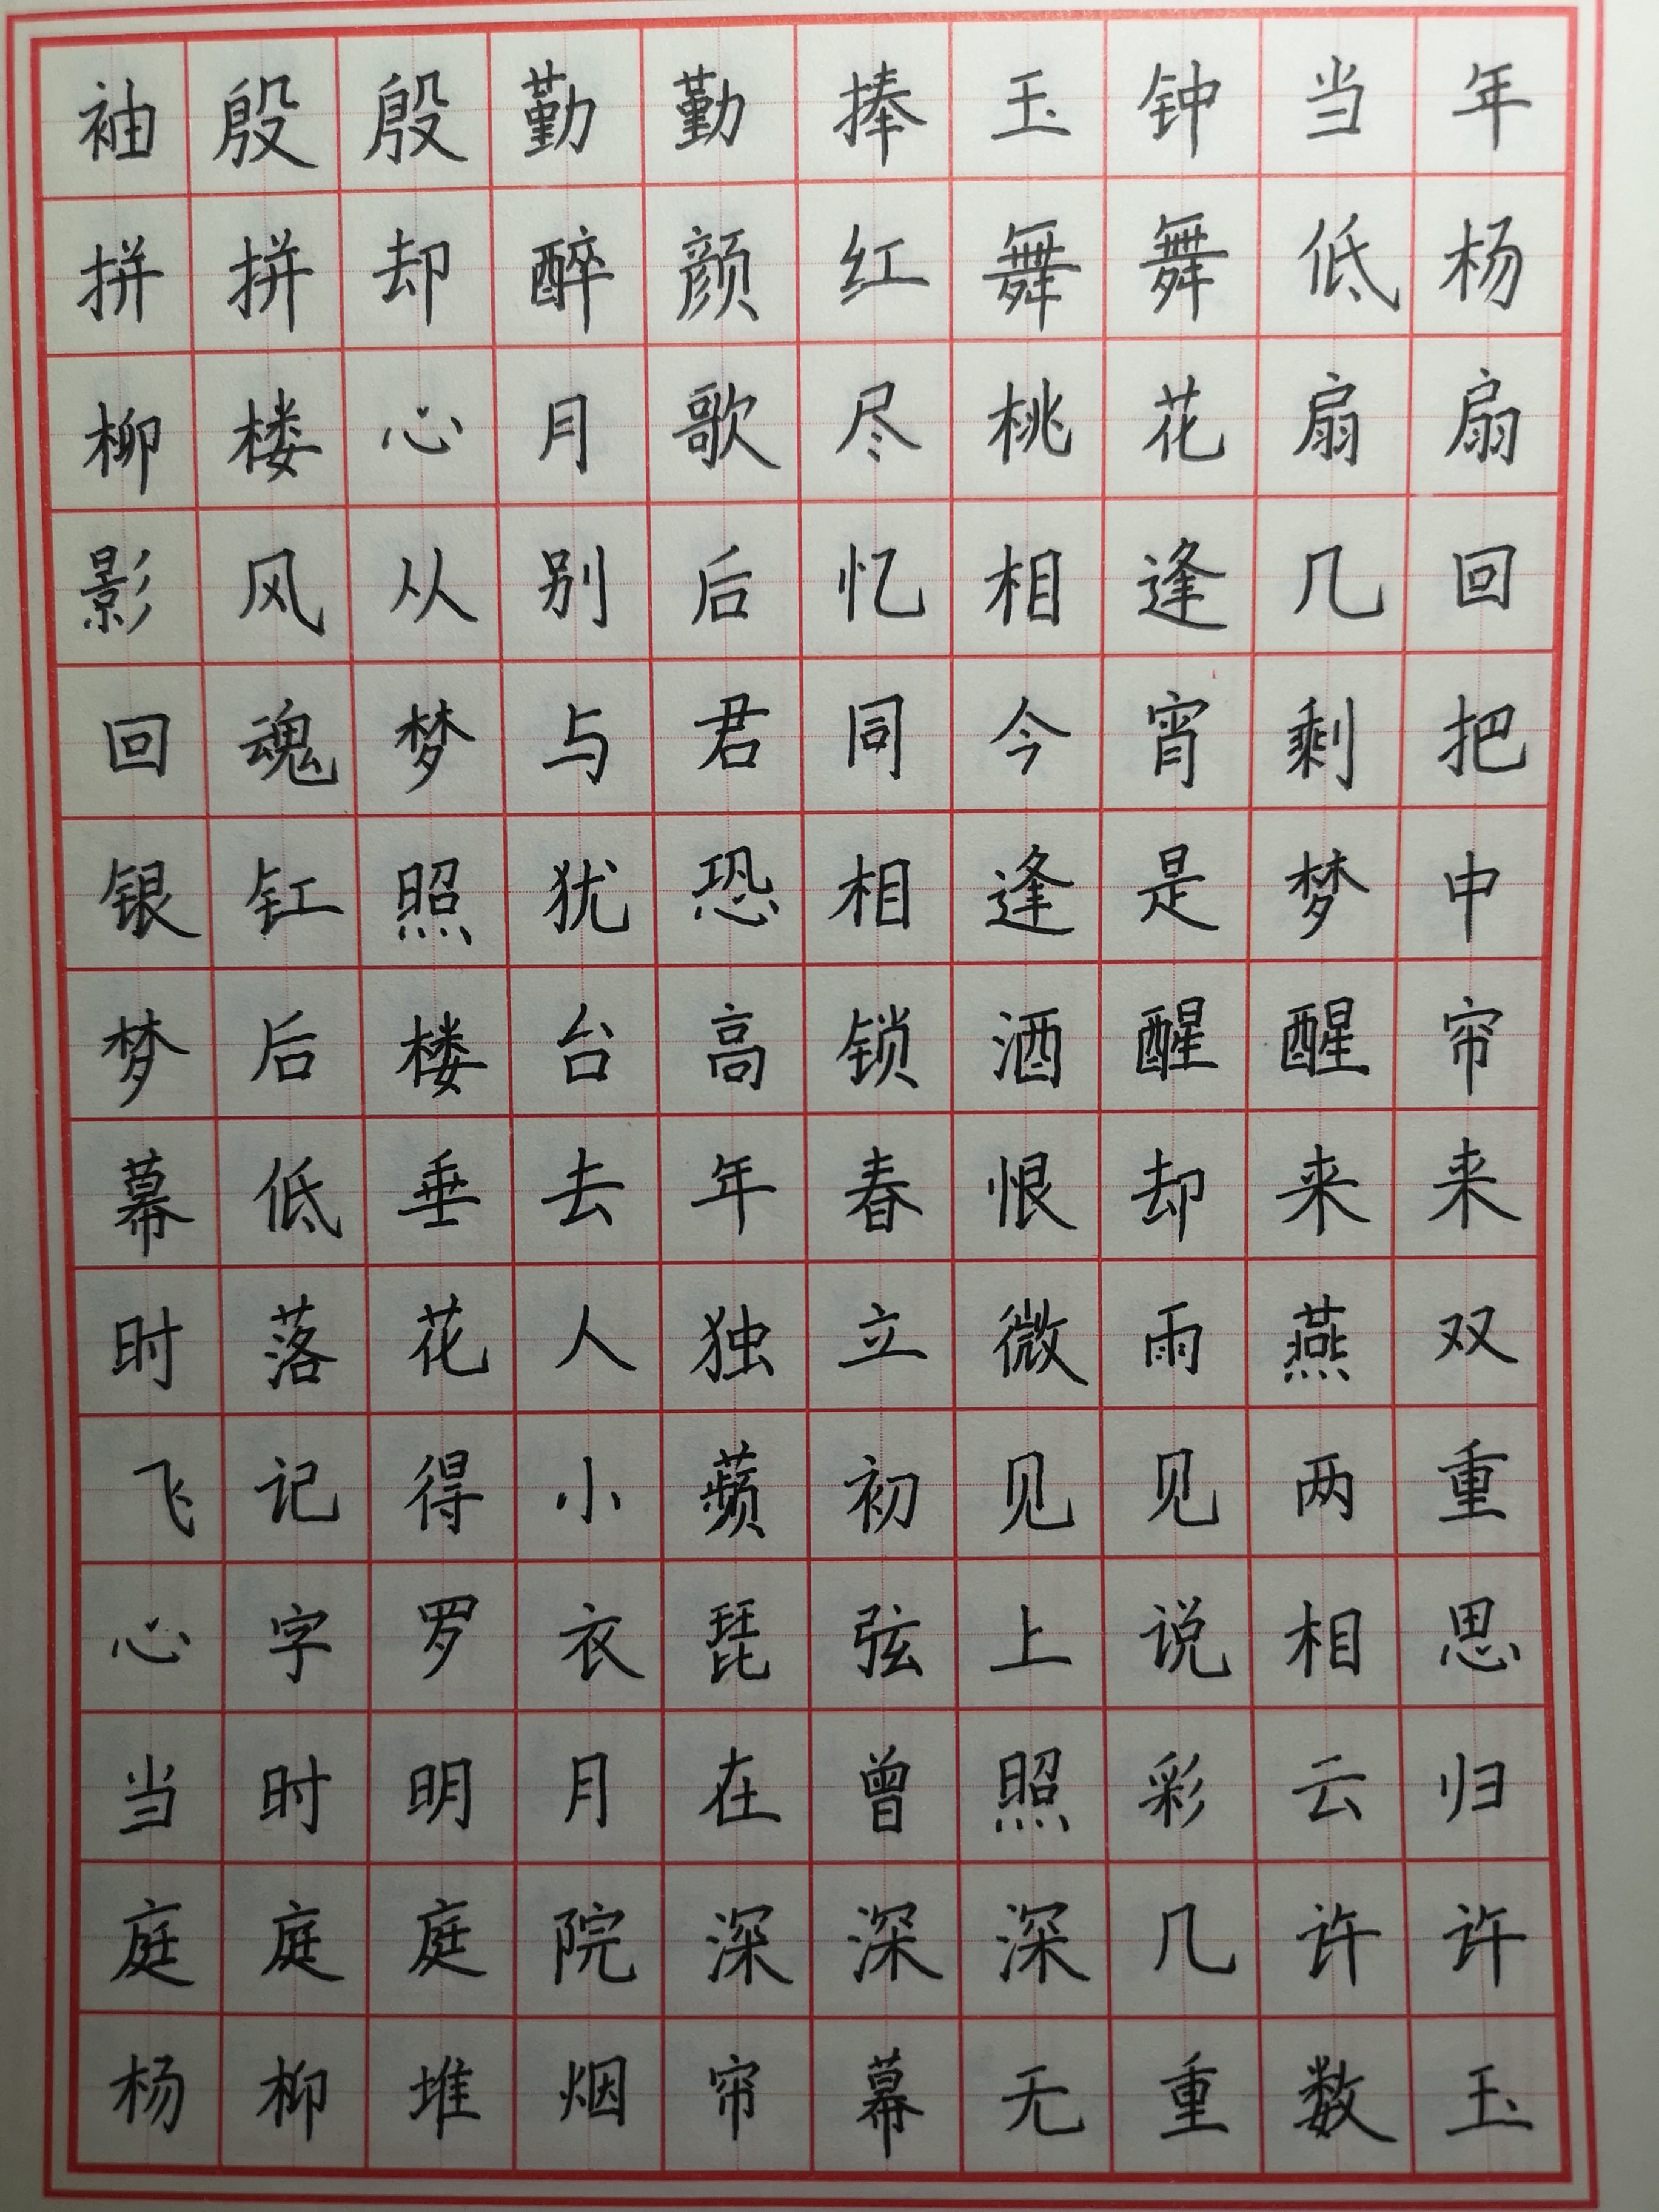 袖殷殷勤勤捧玉钟当年
拼拼却醉颜红舞舞低杨
柳楼心月歌尽桃花扇扇
影风从别后忆相逢几回
回魂梦与君同今宵剩把
银釭照犹恐相逢是梦中
梦后楼台高锁酒醒醒帘
幕低垂去年春恨却来来
时落花人独立微雨燕双
飞记得小蘋初见见两重
心字罗衣琵弦上说相思
当时明月在曾照彩云归
庭庭庭院深深深几许许
杨柳堆烟帘幕无重数玉